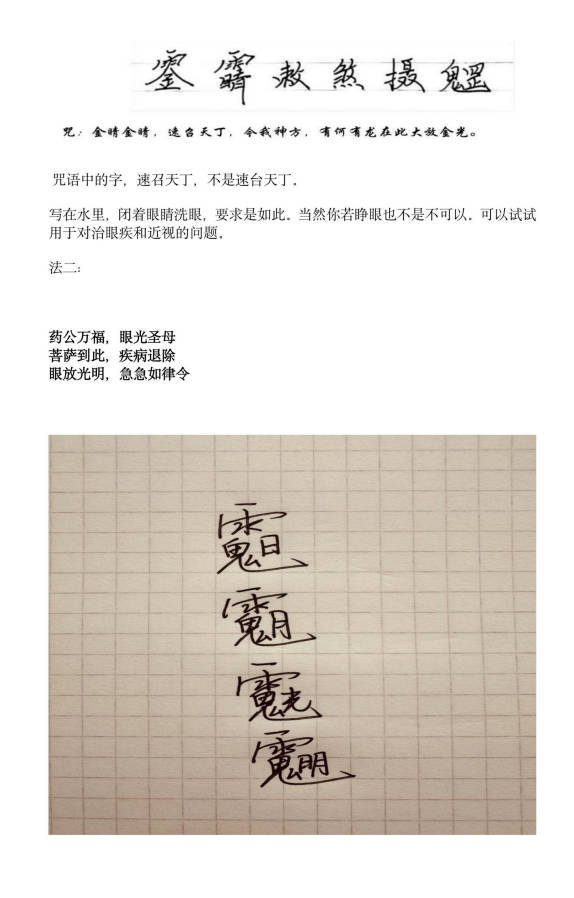 煞 摄
咒：金晴金晴，速台天丁，令我神方，有何有龙在此大放金光。
咒语中的字，速召天丁，不是速台天丁。
写在水里，闭着眼睛洗眼，要求是如此。当然你若睁眼也不是不可以。可以试试
用于对治眼疾和近视的问题。
法二：
药公万福，眼光圣母
菩萨到此，疾病退除
眼放光明，急急如律令